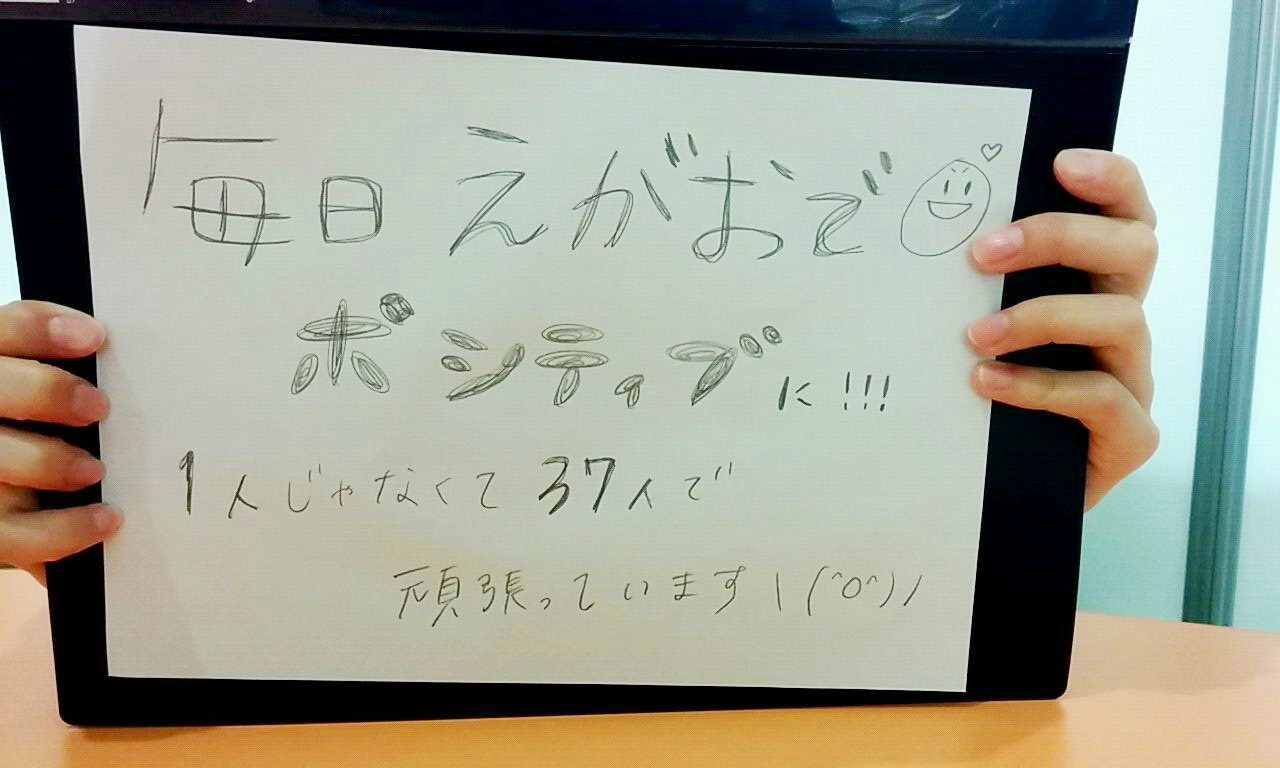 毎日えがおで♡
ポジティブに!!!
1人じゃなくて37人で
頑張っています\(^o^)/